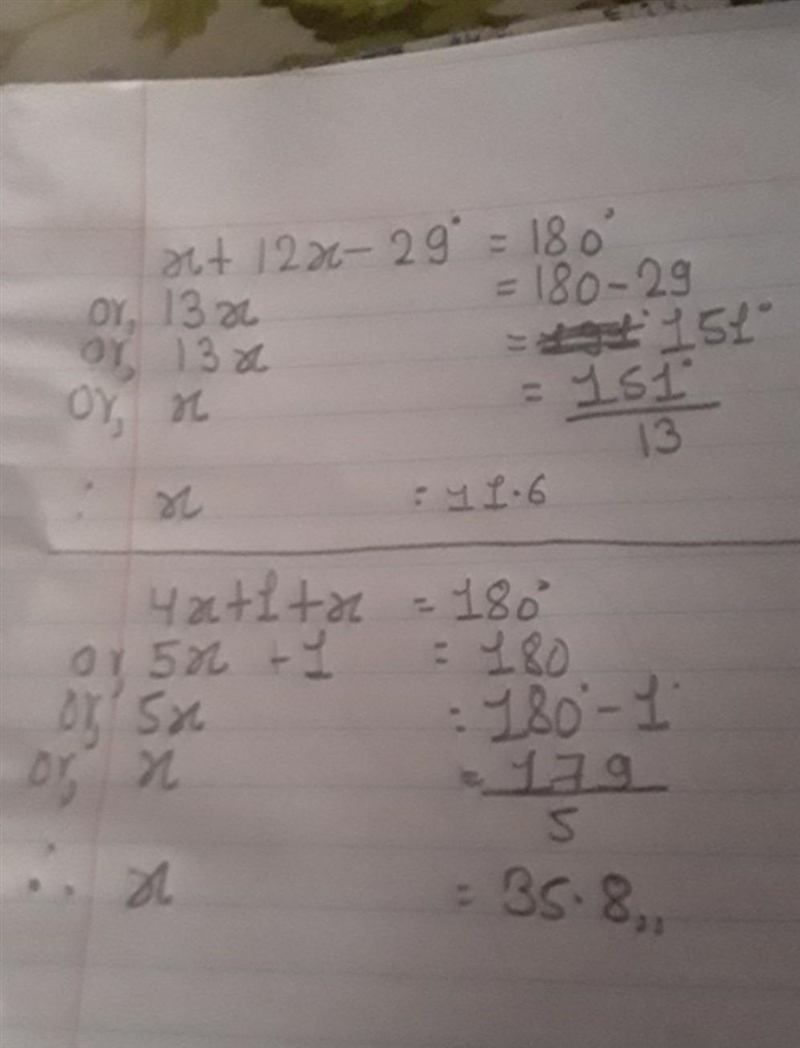 x + 12x - 29° = 180°
or, 13x = 180 - 29
or, 13x = 151°
or, x = 151° / 13
∴ x = 11.6
4x + 1 + x = 180°
or 5x + 1 = 180
or, 5x = 180° - 1°
or, x = 179 / 5
∴ x = 35.8,,